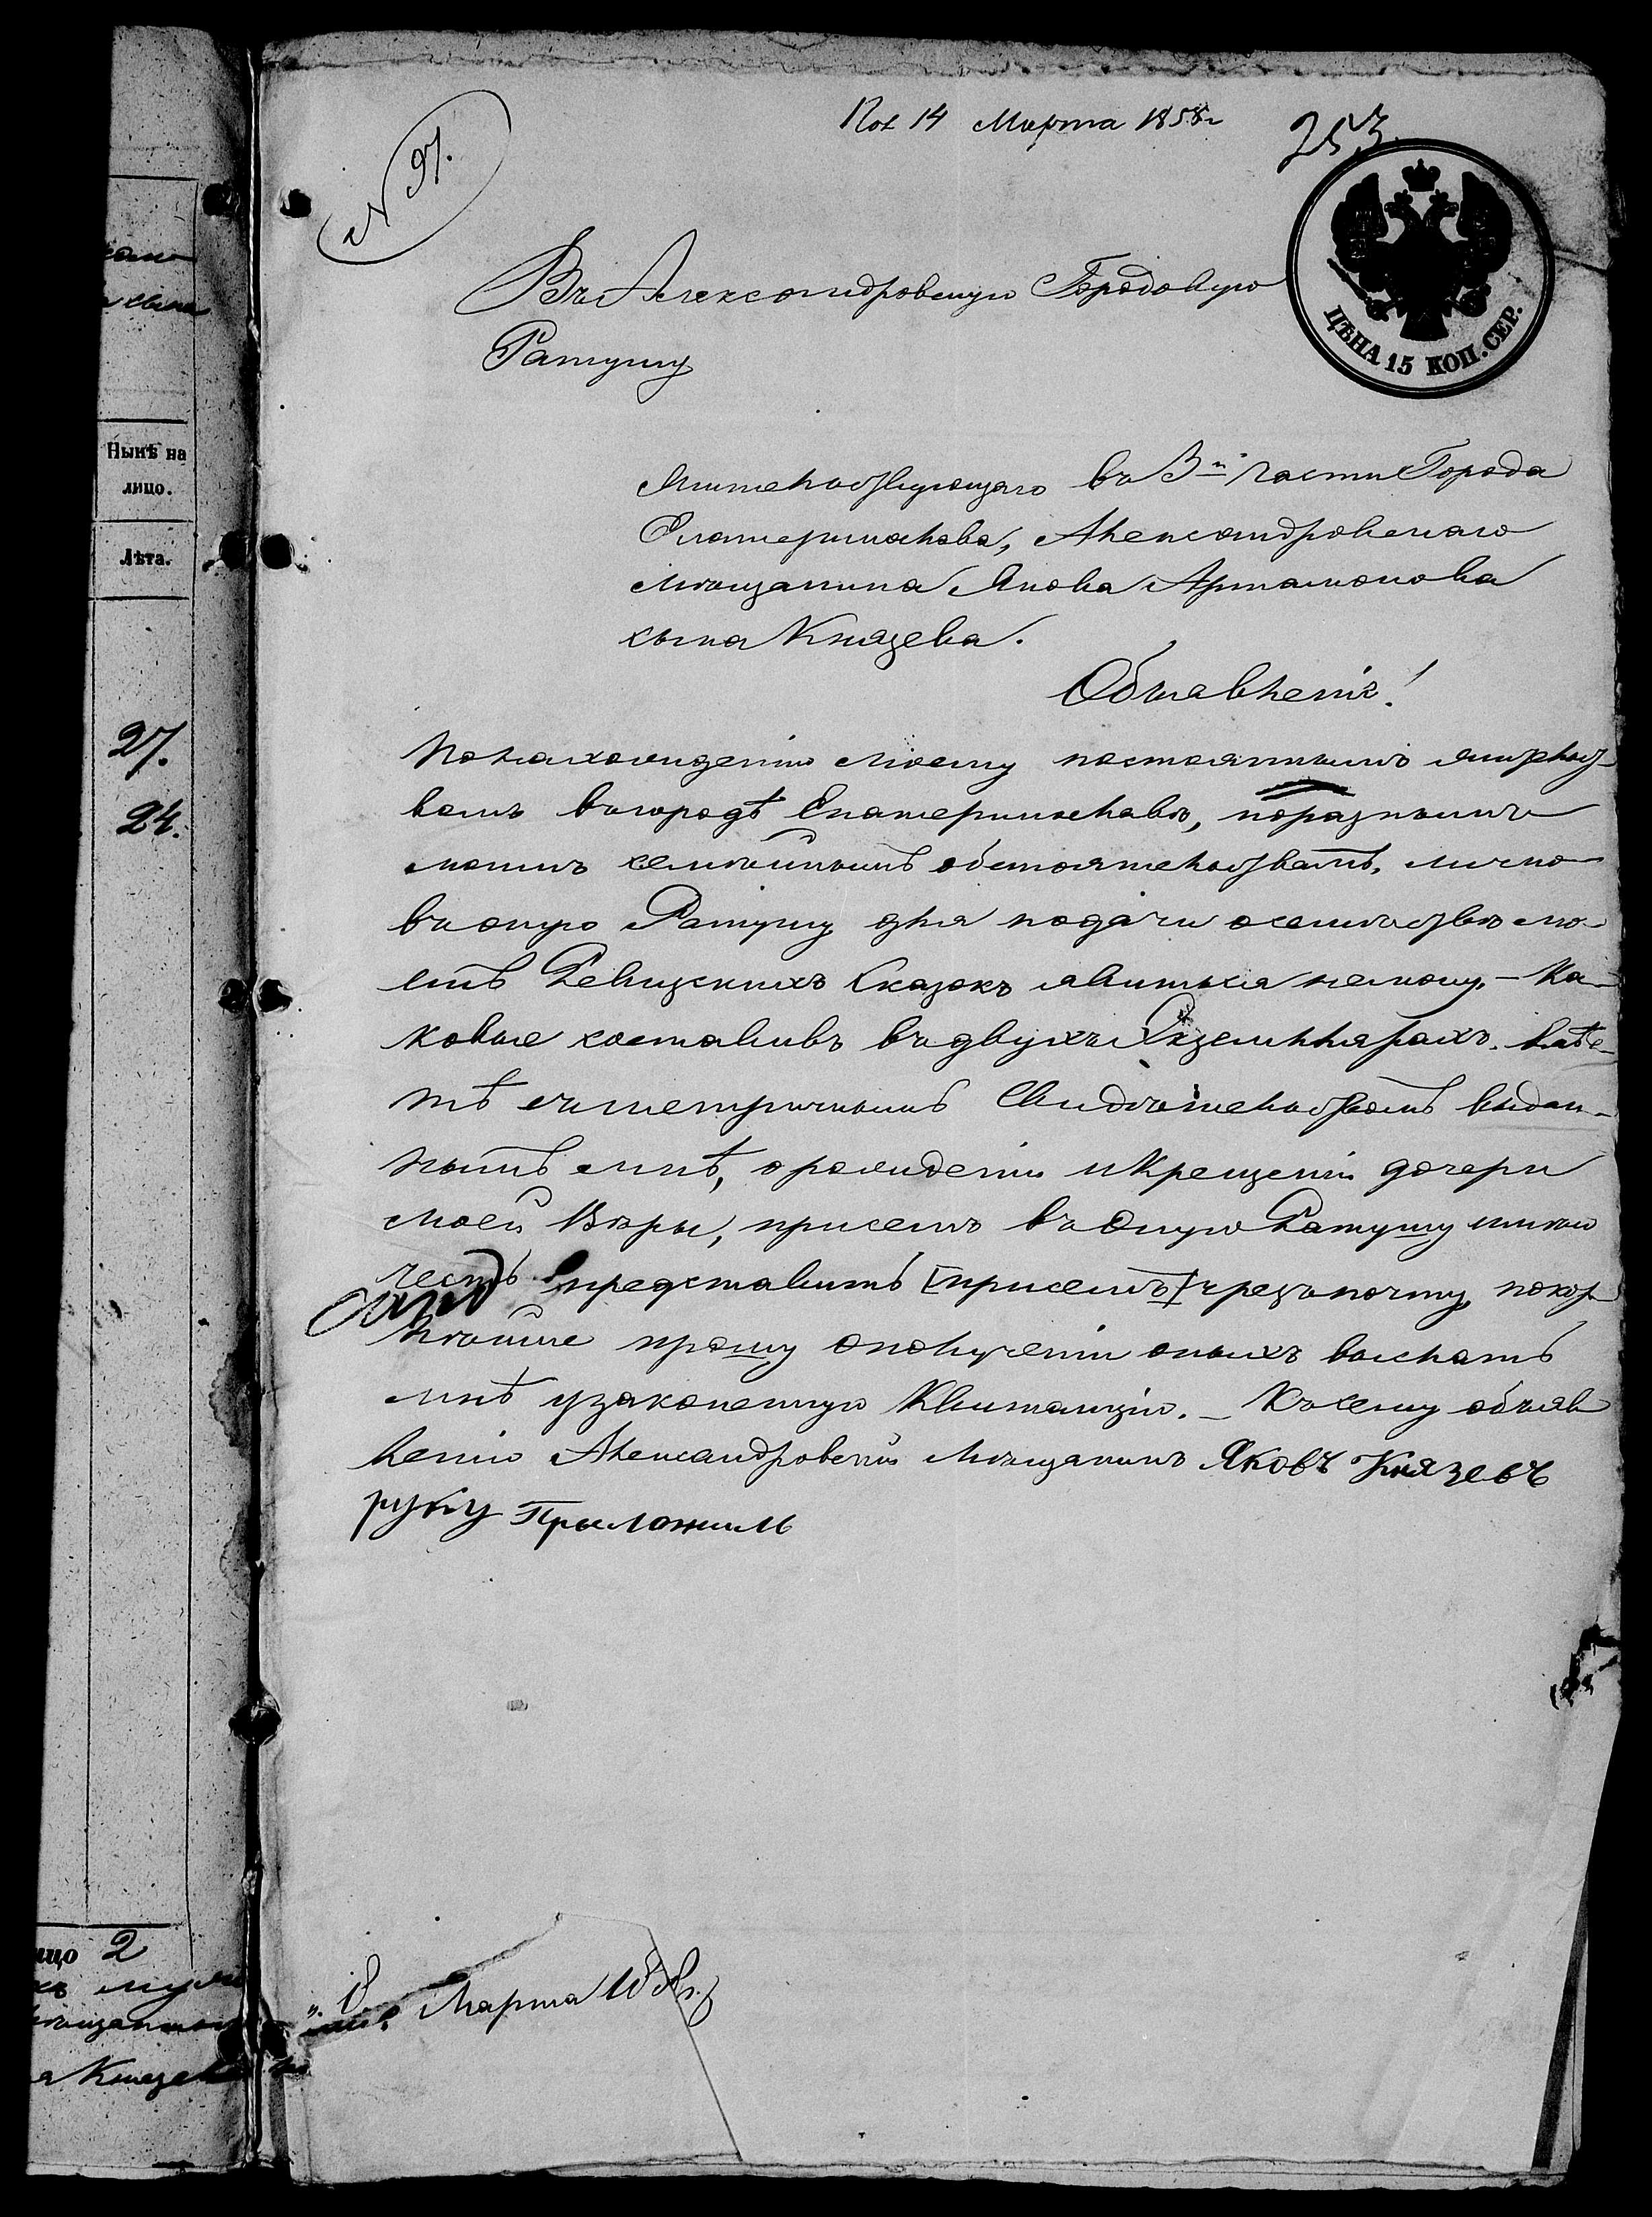 Пол 14 Марта 1858 г
253.
N 97.
ЦѢНА 15 КОП. СЕР.
Въ Александровскую Городовую
Ратушу
Жительствующаго въ 3й части Города
Екатеринослава, Александровскаго
мѣщанина Якова Артамонова
сына Князева.
Объявленіе!
По нахожденію моему постояннымъ жительст-
вомъ въ городѣ Екатеринославѣ, по разнымъ
моимъ семѣйнымъ обстоятельствамъ, лично
въ оную Ратушу для подачи о семѣйствѣ мо-
емъ Ревизскихъ Сказокъ явиться немогу. – Ка-
ковые составивъ въ двухъ Экземплярахъ, вмѣс-
тѣ съ метричнымъ Свидѣтельствомъ выдан-
нымъ мнѣ, о рожденіи и Крещеніи дочери
моей Вѣры, присемъ въ Оную Ратушу имѣю
честь представить [присемъ] чрезъ почту, покор
нѣйше прошу о полученіи оныхъ выслать
мнѣ узаконенную Квитанцію. – Къ сему объяв
ленію Александровскій Мѣщанинъ Яковъ Князевъ
руку Приложилъ
Марта 1858 г.
Нынѣ на
лицо.
Лѣта.
27.
24.
2